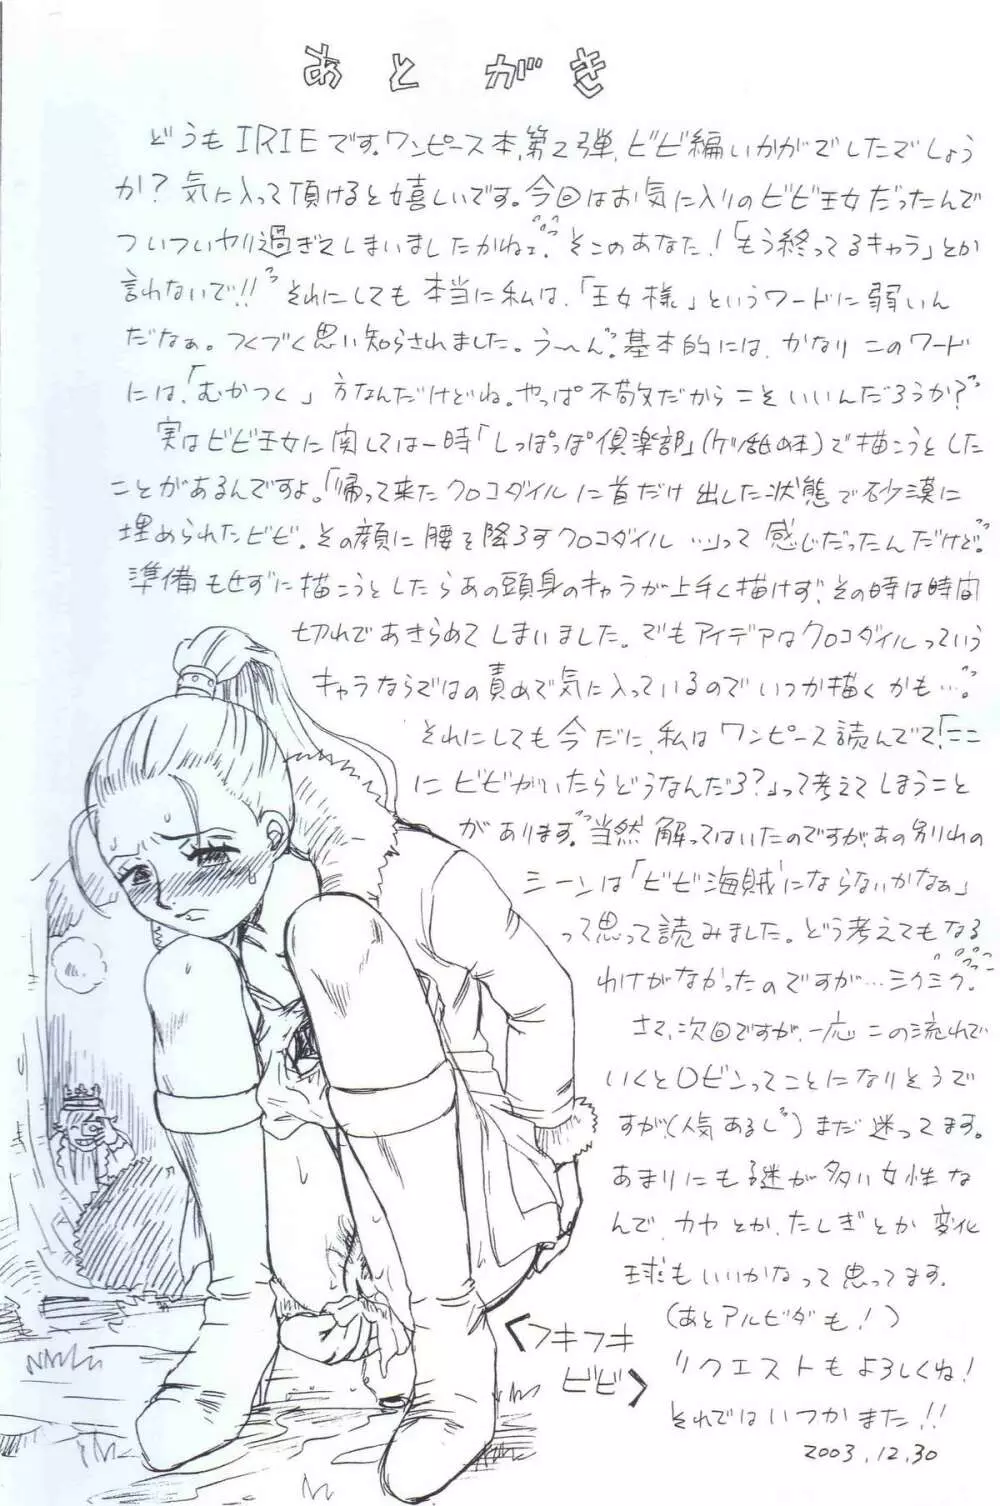 あとがき
どうもIRIEです。ワンピース本、第2弾、ビビ編いかがでしたでしょう
か?気に入って頂けると嬉しいです。今回はお気に入りのビビ王女だったんで
ついついヤリ過ぎてしまいましたかねェ。そこのあなた!「もう終ってるキャラ」とか
言わないで!!それにしても本当に私は、「王女様」というワードに弱いん
だなぁ。つくづく思い知らされました。う〜ん。基本的には、かなりこのワード
には「むかつく」方なんだけどね。やっぱ不敬だからこそいいんだろうか?
実はビビ王女に関しては一時「しっぽっぽ倶楽部」(ケツ舐め本)で描こうとした
ことがあるんですよ。「帰って来たクロコダイルに首だけ出した状態で砂漠に
埋められたビビ。その顔に腰を降ろすクロコダイル…」って感じだったんだけど。
準備もせずに描こうとしたらあの頭身のキャラが上手く描けず、その時は時間
切れであきらめてしまいました。でもアイデアはクロコダイルっていう
キャラならではの責めで気に入っているのでいつか描くかも…。
それにしても今だに、私はワンピース読んでて「ここ
にビビがいたらどうなんだろ?」って考えてしまうこと
があります。当然解ってはいたのですが、あの別れの
シーンは「ビビ海賊にならないかなぁ」
って思って読みました。どう考えてもなる
わけがなかったのですが…ミクミク。
さて、次回ですが、一応この流れで
いくとロビンってことになりそうで
すが、(人気あるし)まだ迷ってます。
あまりにも謎が多い女性な
んで、カヤとか、たしぎとか変化
球もいいかなって思ってます。
(あとアルビダも!)
<フキフキ
ビビ>
リクエストもよろしくね!
それではいつかまた!!
2003.12.30